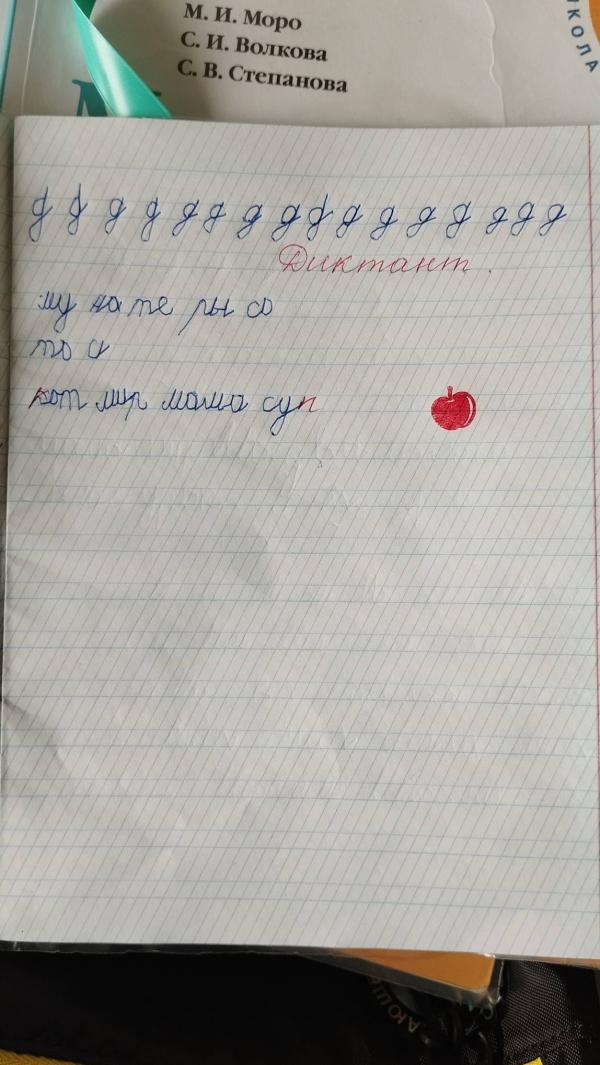 М. И. Моро
С. И. Волкова
С. В. Степанова
ШКОЛА
д д д д д д д д д д д д д д д д
Диктант.
му на те ры со
то и
кот мир мама суп